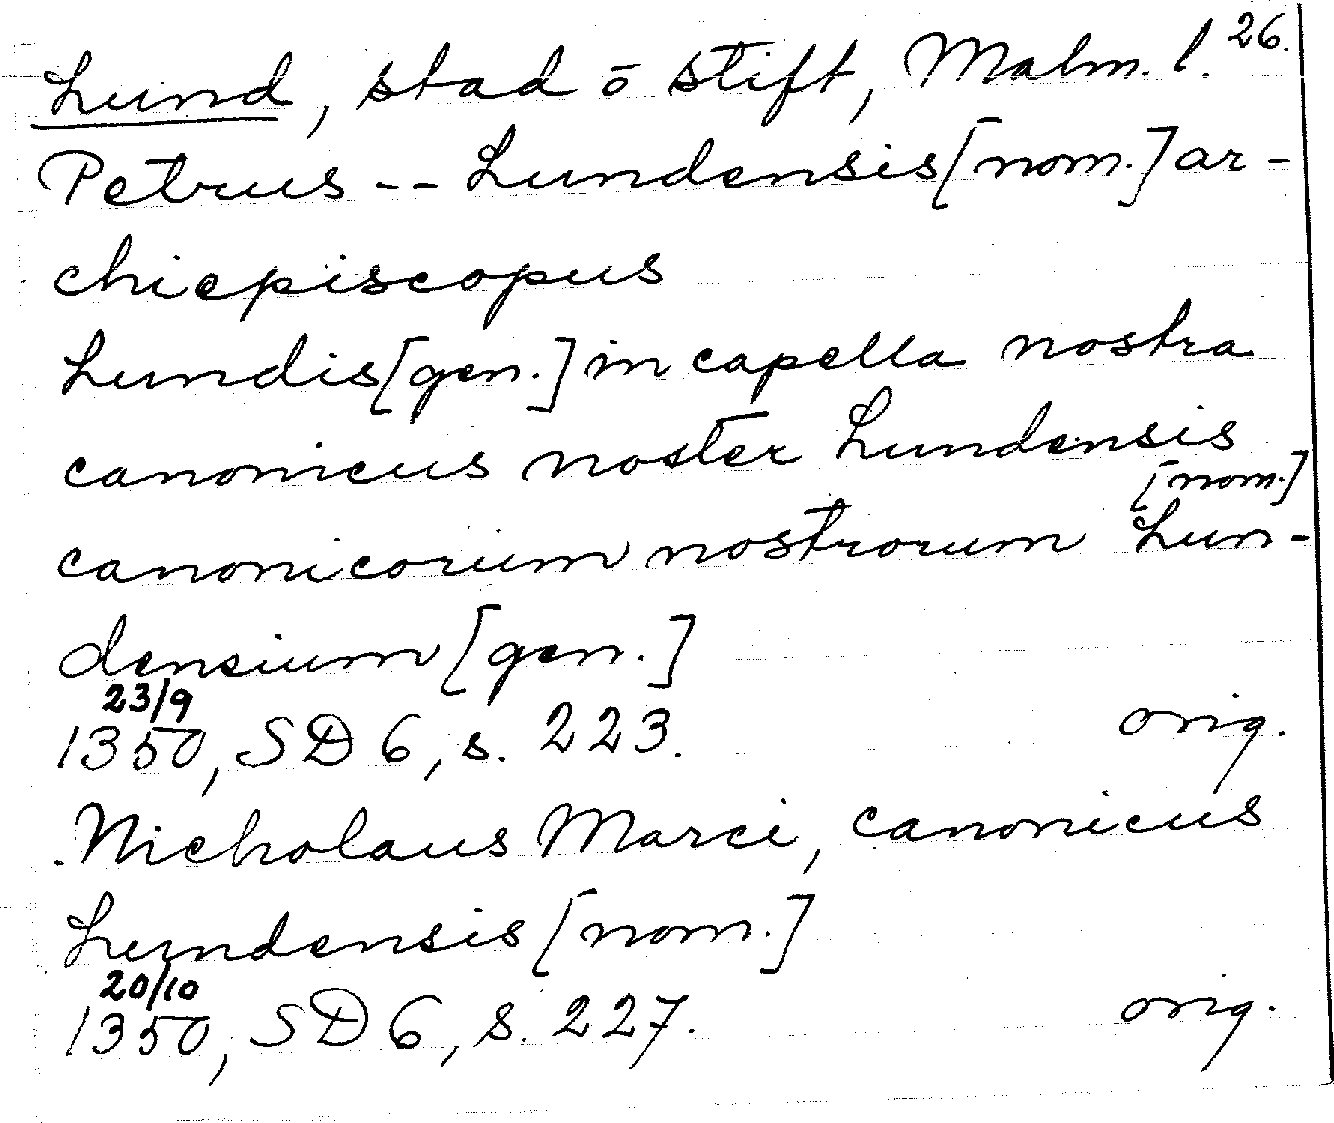 Lund, stad ō stift, Malm. l. 26.
Petrus -- Lundensis [nom.] ar-
chiepiscopus
Lundis [gen.] in capella nostra
canonicus noster Lundensis
[nom.]
canonicorum nostrorum Lun-
densium [gen.]
23/9
1350, SD 6, s. 223. orig.
Nicholaus Marci, canonicus
Lundensis [nom.]
20/10
1350, SD 6, s. 227. orig.